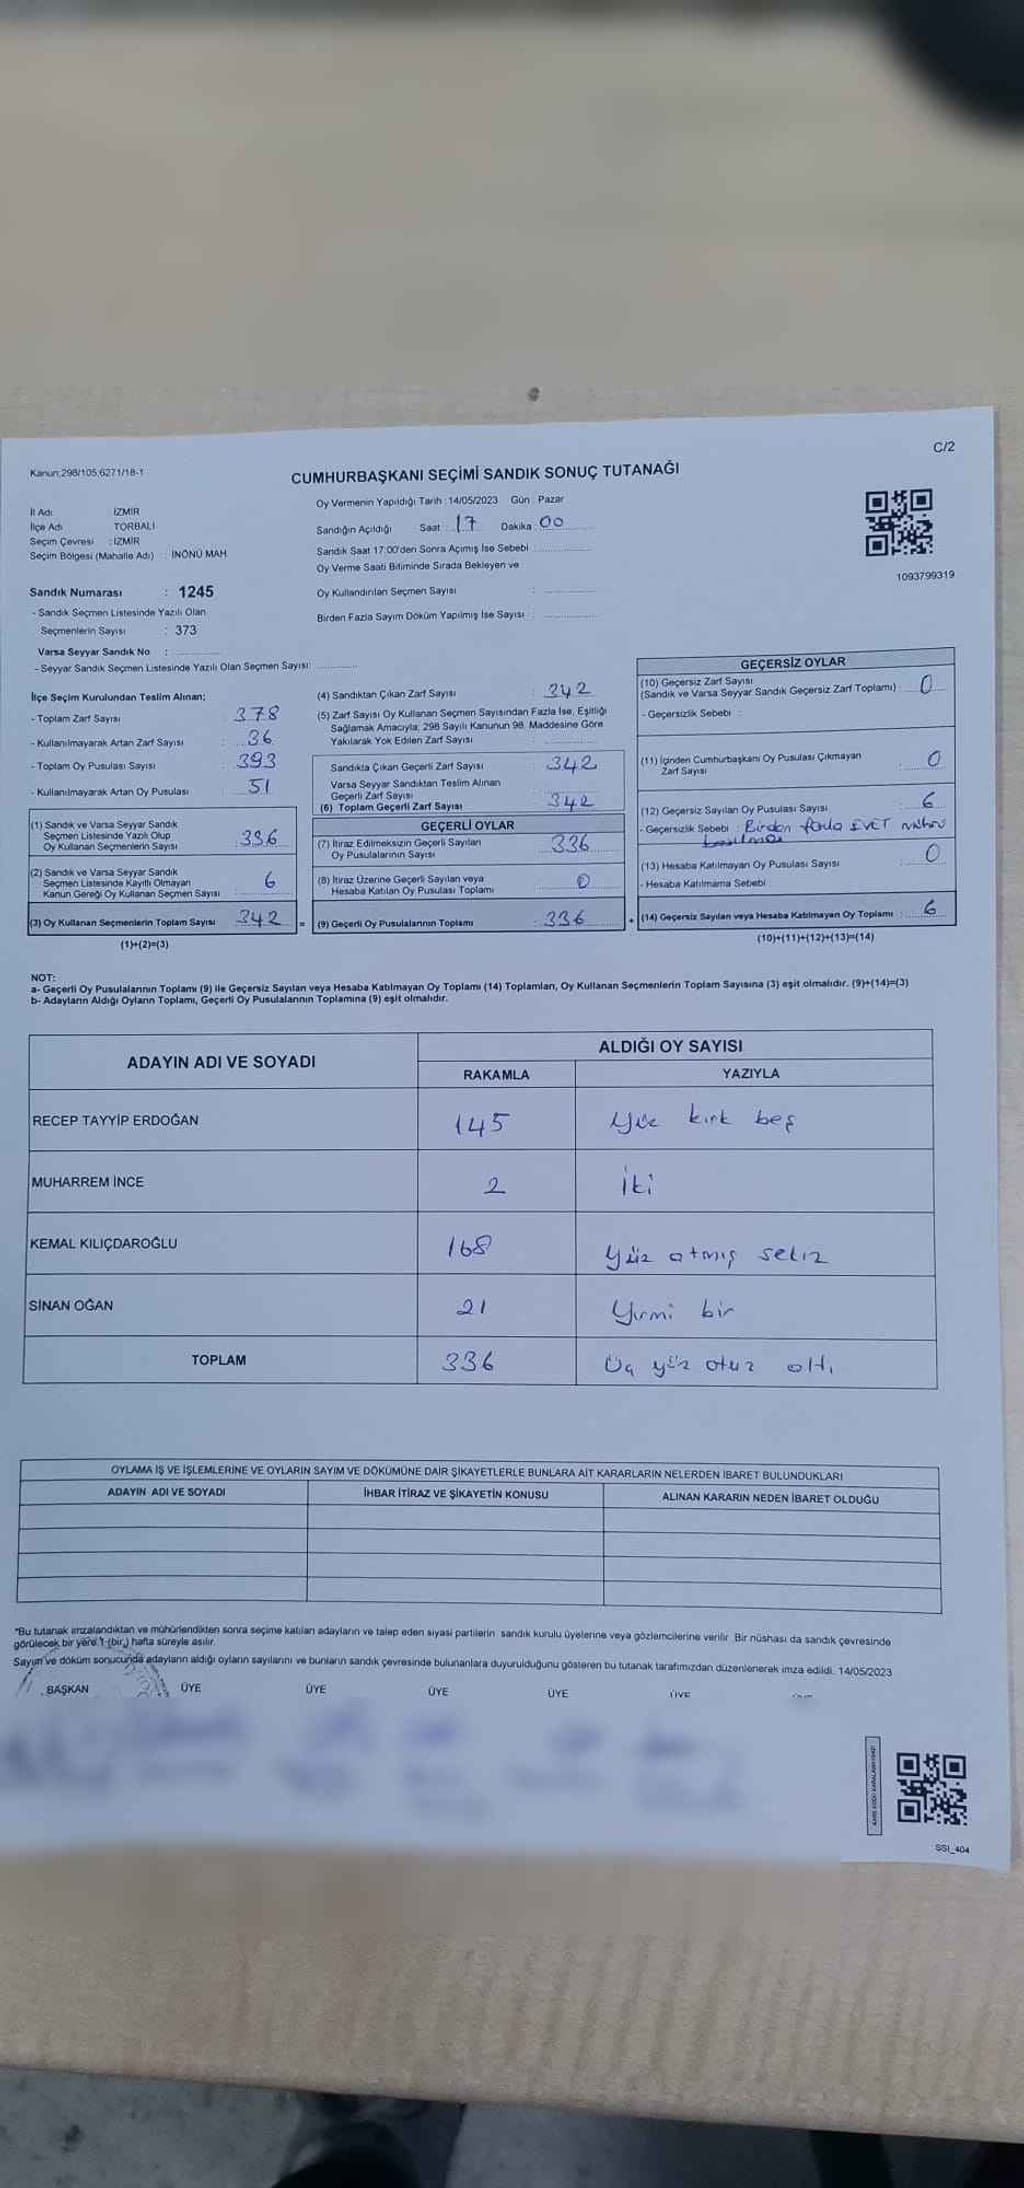 C/2
Kanun:298/105;6271/18-1
CUMHURBAŞKANI SEÇİMİ SANDIK SONUÇ TUTANAĞI
İl Adı İZMİR
İlçe Adı TORBALI
Seçim Çevresi : İZMİR
Seçim Bölgesi (Mahalle Adı) : İNÖNÜ MAH
Oy Vermenin Yapıldığı Tarih : 14/05/2023 Gün : Pazar
Sandığın Açıldığı Saat : 17 Dakika : 00
Sandık Saat 17:00'den Sonra Açımış İse Sebebi :
Oy Verme Saati Bitiminde Sırada Bekleyen ve
Oy Kullandırılan Seçmen Sayısı :
Birden Fazla Sayım Döküm Yapılmış İse Sayısı :
1093799319
Sandık Numarası : 1245
- Sandık Seçmen Listesinde Yazılı Olan
Seçmenlerin Sayısı : 373
Varsa Seyyar Sandık No :
- Seyyar Sandık Seçmen Listesinde Yazılı Olan Seçmen Sayısı:
İlçe Seçim Kurulundan Teslim Alınan;
- Toplam Zarf Sayısı 378
- Kullanılmayarak Artan Zarf Sayısı : 36
- Toplam Oy Pusulası Sayısı : 393
- Kullanılmayarak Artan Oy Pusulası : 51
(1) Sandık ve Varsa Seyyar Sandık
Seçmen Listesinde Yazılı Olup
Oy Kullanan Seçmenlerin Sayısı : 336
(2) Sandık ve Varsa Seyyar Sandık
Seçmen Listesinde Kayıtlı Olmayan
Kanun Gereği Oy Kullanan Seçmen Sayısı 6
(3) Oy Kullanan Seçmenlerin Toplam Sayısı 342 =
(1)+(2)=(3)
(4) Sandıktan Çıkan Zarf Sayısı : 342
(5) Zarf Sayısı Oy Kullanan Seçmen Sayısından Fazla İse, Eşitliği
Sağlamak Amacıyla; 298 Sayılı Kanunun 98. Maddesine Göre
Yakılarak Yok Edilen Zarf Sayısı :
Sandıkta Çıkan Geçerli Zarf Sayısı : 342
Varsa Seyyar Sandıktan Teslim Alınan
Geçerli Zarf Sayısı
(6) Toplam Geçerli Zarf Sayısı : 342
GEÇERLİ OYLAR
(7) İtiraz Edilmeksizin Geçerli Sayılan
Oy Pusulalarının Sayısı : 336
(8) İtiraz Üzerine Geçerli Sayılan veya
Hesaba Katılan Oy Pusulası Toplamı : 0
(9) Geçerli Oy Pusulalarının Toplamı : 336 +
GEÇERSİZ OYLAR
(10) Geçersiz Zarf Sayısı
(Sandık ve Varsa Seyyar Sandık Geçersiz Zarf Toplamı) : 0
- Geçersizlik Sebebi :
(11) İçinden Cumhurbaşkanı Oy Pusulası Çıkmayan
Zarf Sayısı : 0
(12) Geçersiz Sayılan Oy Pusulası Sayısı : 6
- Geçersizlik Sebebi : Birden fazla EVET mührü
basılması
(13) Hesaba Katılmayan Oy Pusulası Sayısı : 0
- Hesaba Katılmama Sebebi :
(14) Geçersiz Sayılan veya Hesaba Katılmayan Oy Toplamı : 6
(10)+(11)+(12)+(13)=(14)
NOT:
a- Geçerli Oy Pusulalarının Toplamı (9) ile Geçersiz Sayılan veya Hesaba Katılmayan Oy Toplamı (14) Toplamları, Oy Kullanan Seçmenlerin Toplam Sayısına (3) eşit olmalıdır. (9)+(14)=(3)
b- Adayların Aldığı Oyların Toplamı, Geçerli Oy Pusulalarının Toplamına (9) eşit olmalıdır.
ADAYIN ADI VE SOYADI ALDIĞI OY SAYISI
RAKAMLA YAZIYLA
RECEP TAYYİP ERDOĞAN 145 Yüz kırk beş
MUHARREM İNCE 2 İki
KEMAL KILIÇDAROĞLU 168 Yüz atmış sekiz
SİNAN OĞAN 21 Yirmi bir
TOPLAM 336 Üç yüz otuz altı
OYLAMA İŞ VE İŞLEMLERİNE VE OYLARIN SAYIM VE DÖKÜMÜNE DAİR ŞİKAYETLERLE BUNLARA AİT KARARLARIN NELERDEN İBARET BULUNDUKLARI
ADAYIN ADI VE SOYADI İHBAR İTİRAZ VE ŞİKAYETİN KONUSU ALINAN KARARIN NEDEN İBARET OLDUĞU
*Bu tutanak imzalandıktan ve mühürlendikten sonra seçime katılan adayların ve talep eden siyasi partilerin sandık kurulu üyelerine veya gözlemcilerine verilir. Bir nüshası da sandık çevresinde
görülecek bir yere 1 (bir) hafta süreyle asılır.
Sayım ve döküm sonucunda adayların aldığı oyların sayılarını ve bunların sandık çevresinde bulunanlara duyurulduğunu gösteren bu tutanak tarafımızdan düzenlenerek imza edildi. 14/05/2023
BAŞKAN ÜYE ÜYE ÜYE ÜYE ÜYE
SSI_404